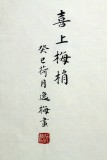 喜上梅梢
癸巳荷月逸梅畫